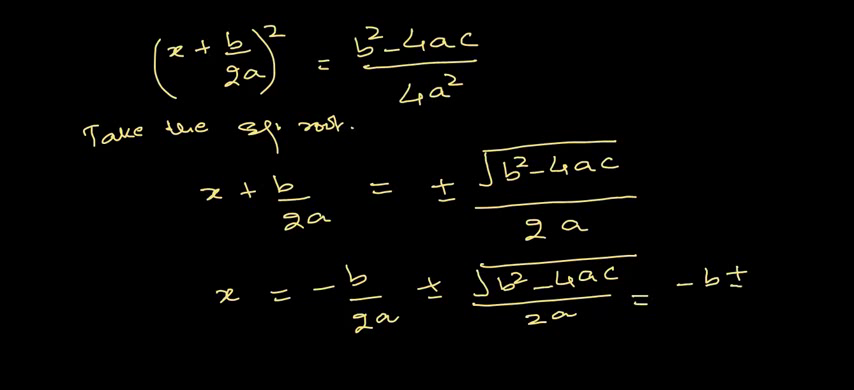 (x + b/2a)² = b²-4ac/4a²
Take the sq. root.
x + b/2a = ± √b²-4ac/2a
x = -b/2a ± √b²-4ac/2a = -b ±